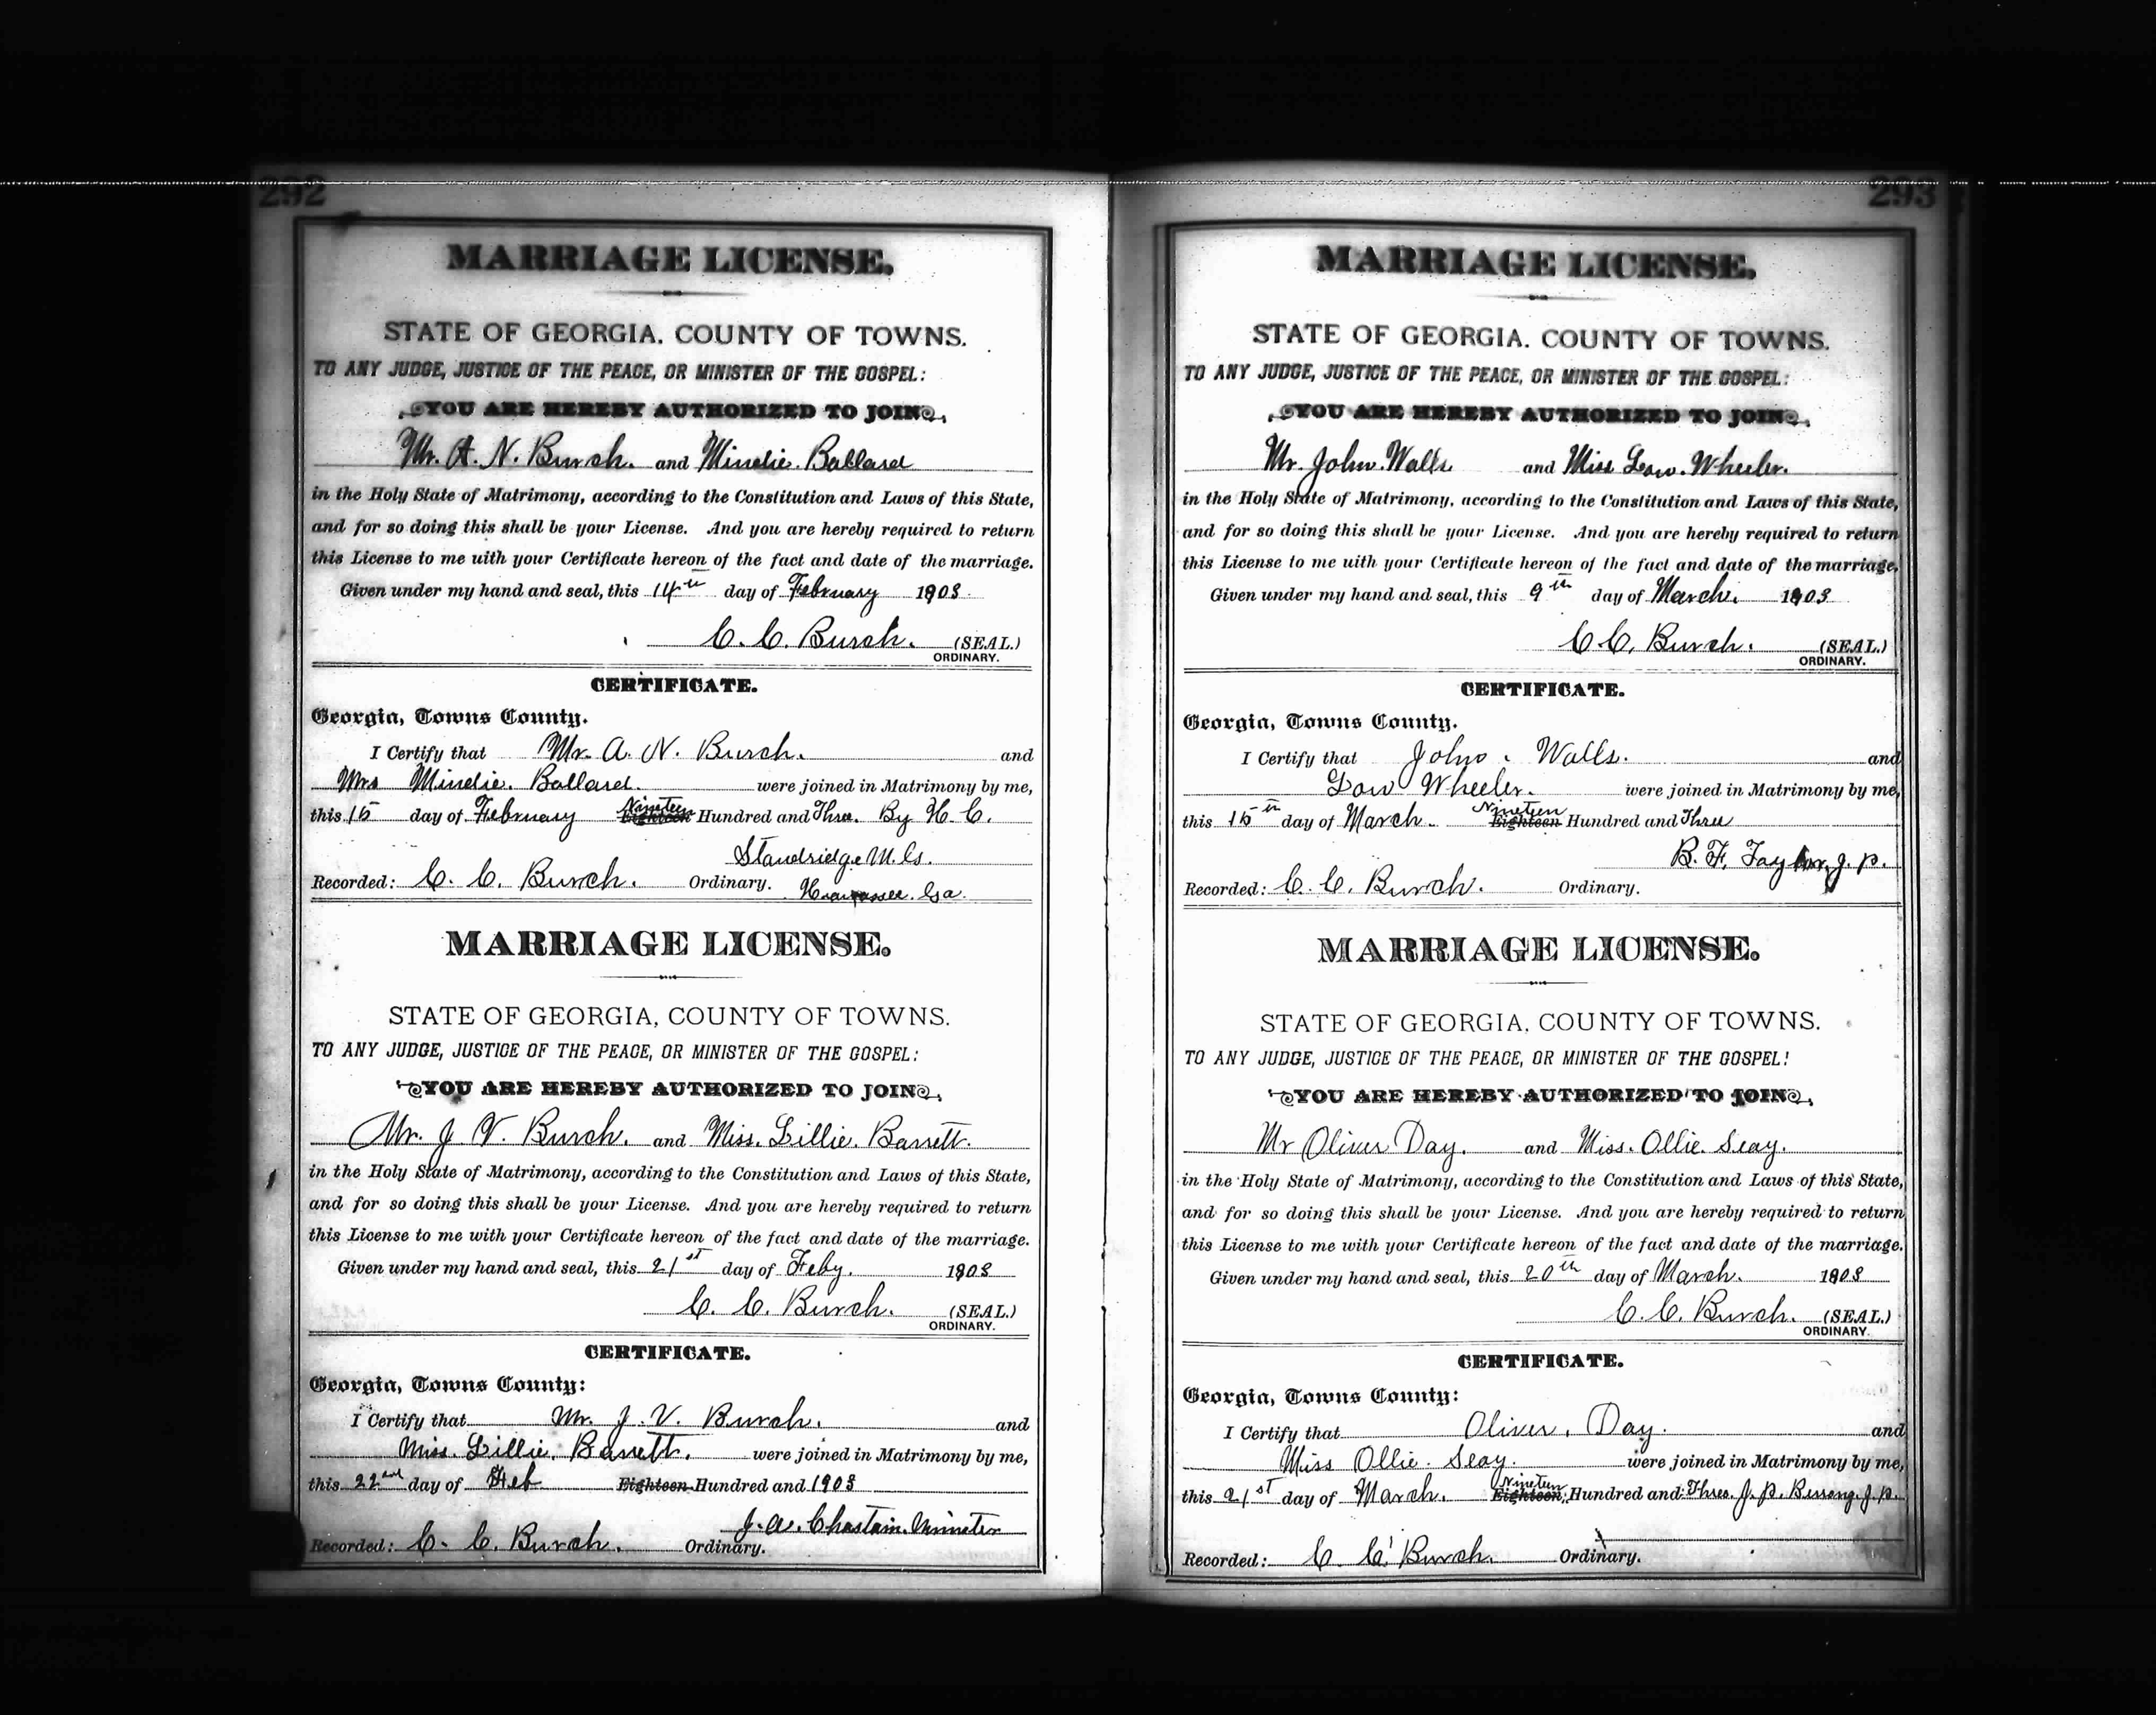 292
MARRIAGE LICENSE.
STATE OF GEORGIA. COUNTY OF TOWNS.
TO ANY JUDGE, JUSTICE OF THE PEACE, OR MINISTER OF THE GOSPEL:
YOU ARE HEREBY AUTHORIZED TO JOIN
Mr. A. N. Burch. and Mindie. Ballard
in the Holy State of Matrimony, according to the Constitution and Laws of this State,
and for so doing this shall be your License. And you are hereby required to return
this License to me with your Certificate hereon of the fact and date of the marriage.
Given under my hand and seal, this 14th day of February 1903.
C. C. Burch. (SEAL.)
ORDINARY.
CERTIFICATE.
Georgia, Towns County.
I Certify that Mr. A. N. Burch. and
Mrs Mindie. Ballard. were joined in Matrimony by me,
this 15 day of February Nineteen Eighteen Hundred and Three. By H. C.
Standridge M. Gs.
Recorded: C. C. Burch. Ordinary. Hiawassee. Ga.
MARRIAGE LICENSE.
STATE OF GEORGIA, COUNTY OF TOWNS.
TO ANY JUDGE, JUSTICE OF THE PEACE, OR MINISTER OF THE GOSPEL:
YOU ARE HEREBY AUTHORIZED TO JOIN
Mr. J. V. Burch. and Miss. Lillie. Barrett.
in the Holy State of Matrimony, according to the Constitution and Laws of this State,
and for so doing this shall be your License. And you are hereby required to return
this License to me with your Certificate hereon of the fact and date of the marriage.
Given under my hand and seal, this 21st day of Feby. 1903
C. C. Burch. (SEAL.)
ORDINARY.
CERTIFICATE.
Georgia, Towns County:
I Certify that Mr. J. V. Burch. and
Miss. Lillie. Barrett. were joined in Matrimony by me,
this 22nd day of Feb Eighteen Hundred and 1903
J. A. Chastain. Minister
Recorded: C. C. Burch. Ordinary.
293
MARRIAGE LICENSE.
STATE OF GEORGIA. COUNTY OF TOWNS.
TO ANY JUDGE, JUSTICE OF THE PEACE, OR MINISTER OF THE GOSPEL:
YOU ARE HEREBY AUTHORIZED TO JOIN
Mr. John. Walls. and Miss Low. Wheeler.
in the Holy State of Matrimony, according to the Constitution and Laws of this State,
and for so doing this shall be your License. And you are hereby required to return
this License to me with your Certificate hereon of the fact and date of the marriage.
Given under my hand and seal, this 9th day of March. 1903
C. C. Burch. (SEAL.)
ORDINARY.
CERTIFICATE.
Georgia, Towns County.
I Certify that John. Walls. and
Low Wheeler. were joined in Matrimony by me,
this 15th day of March. Nineteen Eighteen Hundred and Three
B. F. Taylor, J. P.
Recorded: C. C. Burch. Ordinary.
MARRIAGE LICENSE.
STATE OF GEORGIA, COUNTY OF TOWNS.
TO ANY JUDGE, JUSTICE OF THE PEACE, OR MINISTER OF THE GOSPEL!
YOU ARE HEREBY AUTHORIZED TO JOIN
Mr Oliver Day. and Miss. Ollie. Seay.
in the Holy State of Matrimony, according to the Constitution and Laws of this State,
and for so doing this shall be your License. And you are hereby required to return
this License to me with your Certificate hereon of the fact and date of the marriage.
Given under my hand and seal, this 20th day of March. 1903
C. C. Burch. (SEAL.)
ORDINARY.
CERTIFICATE.
Georgia, Towns County:
I Certify that Oliver. Day. and
Miss Ollie. Seay. were joined in Matrimony by me,
this 21st day of March. Nineteen Eighteen, Hundred and Three. J. P. Berrong. J. P.
Recorded: C. C. Burch. Ordinary.